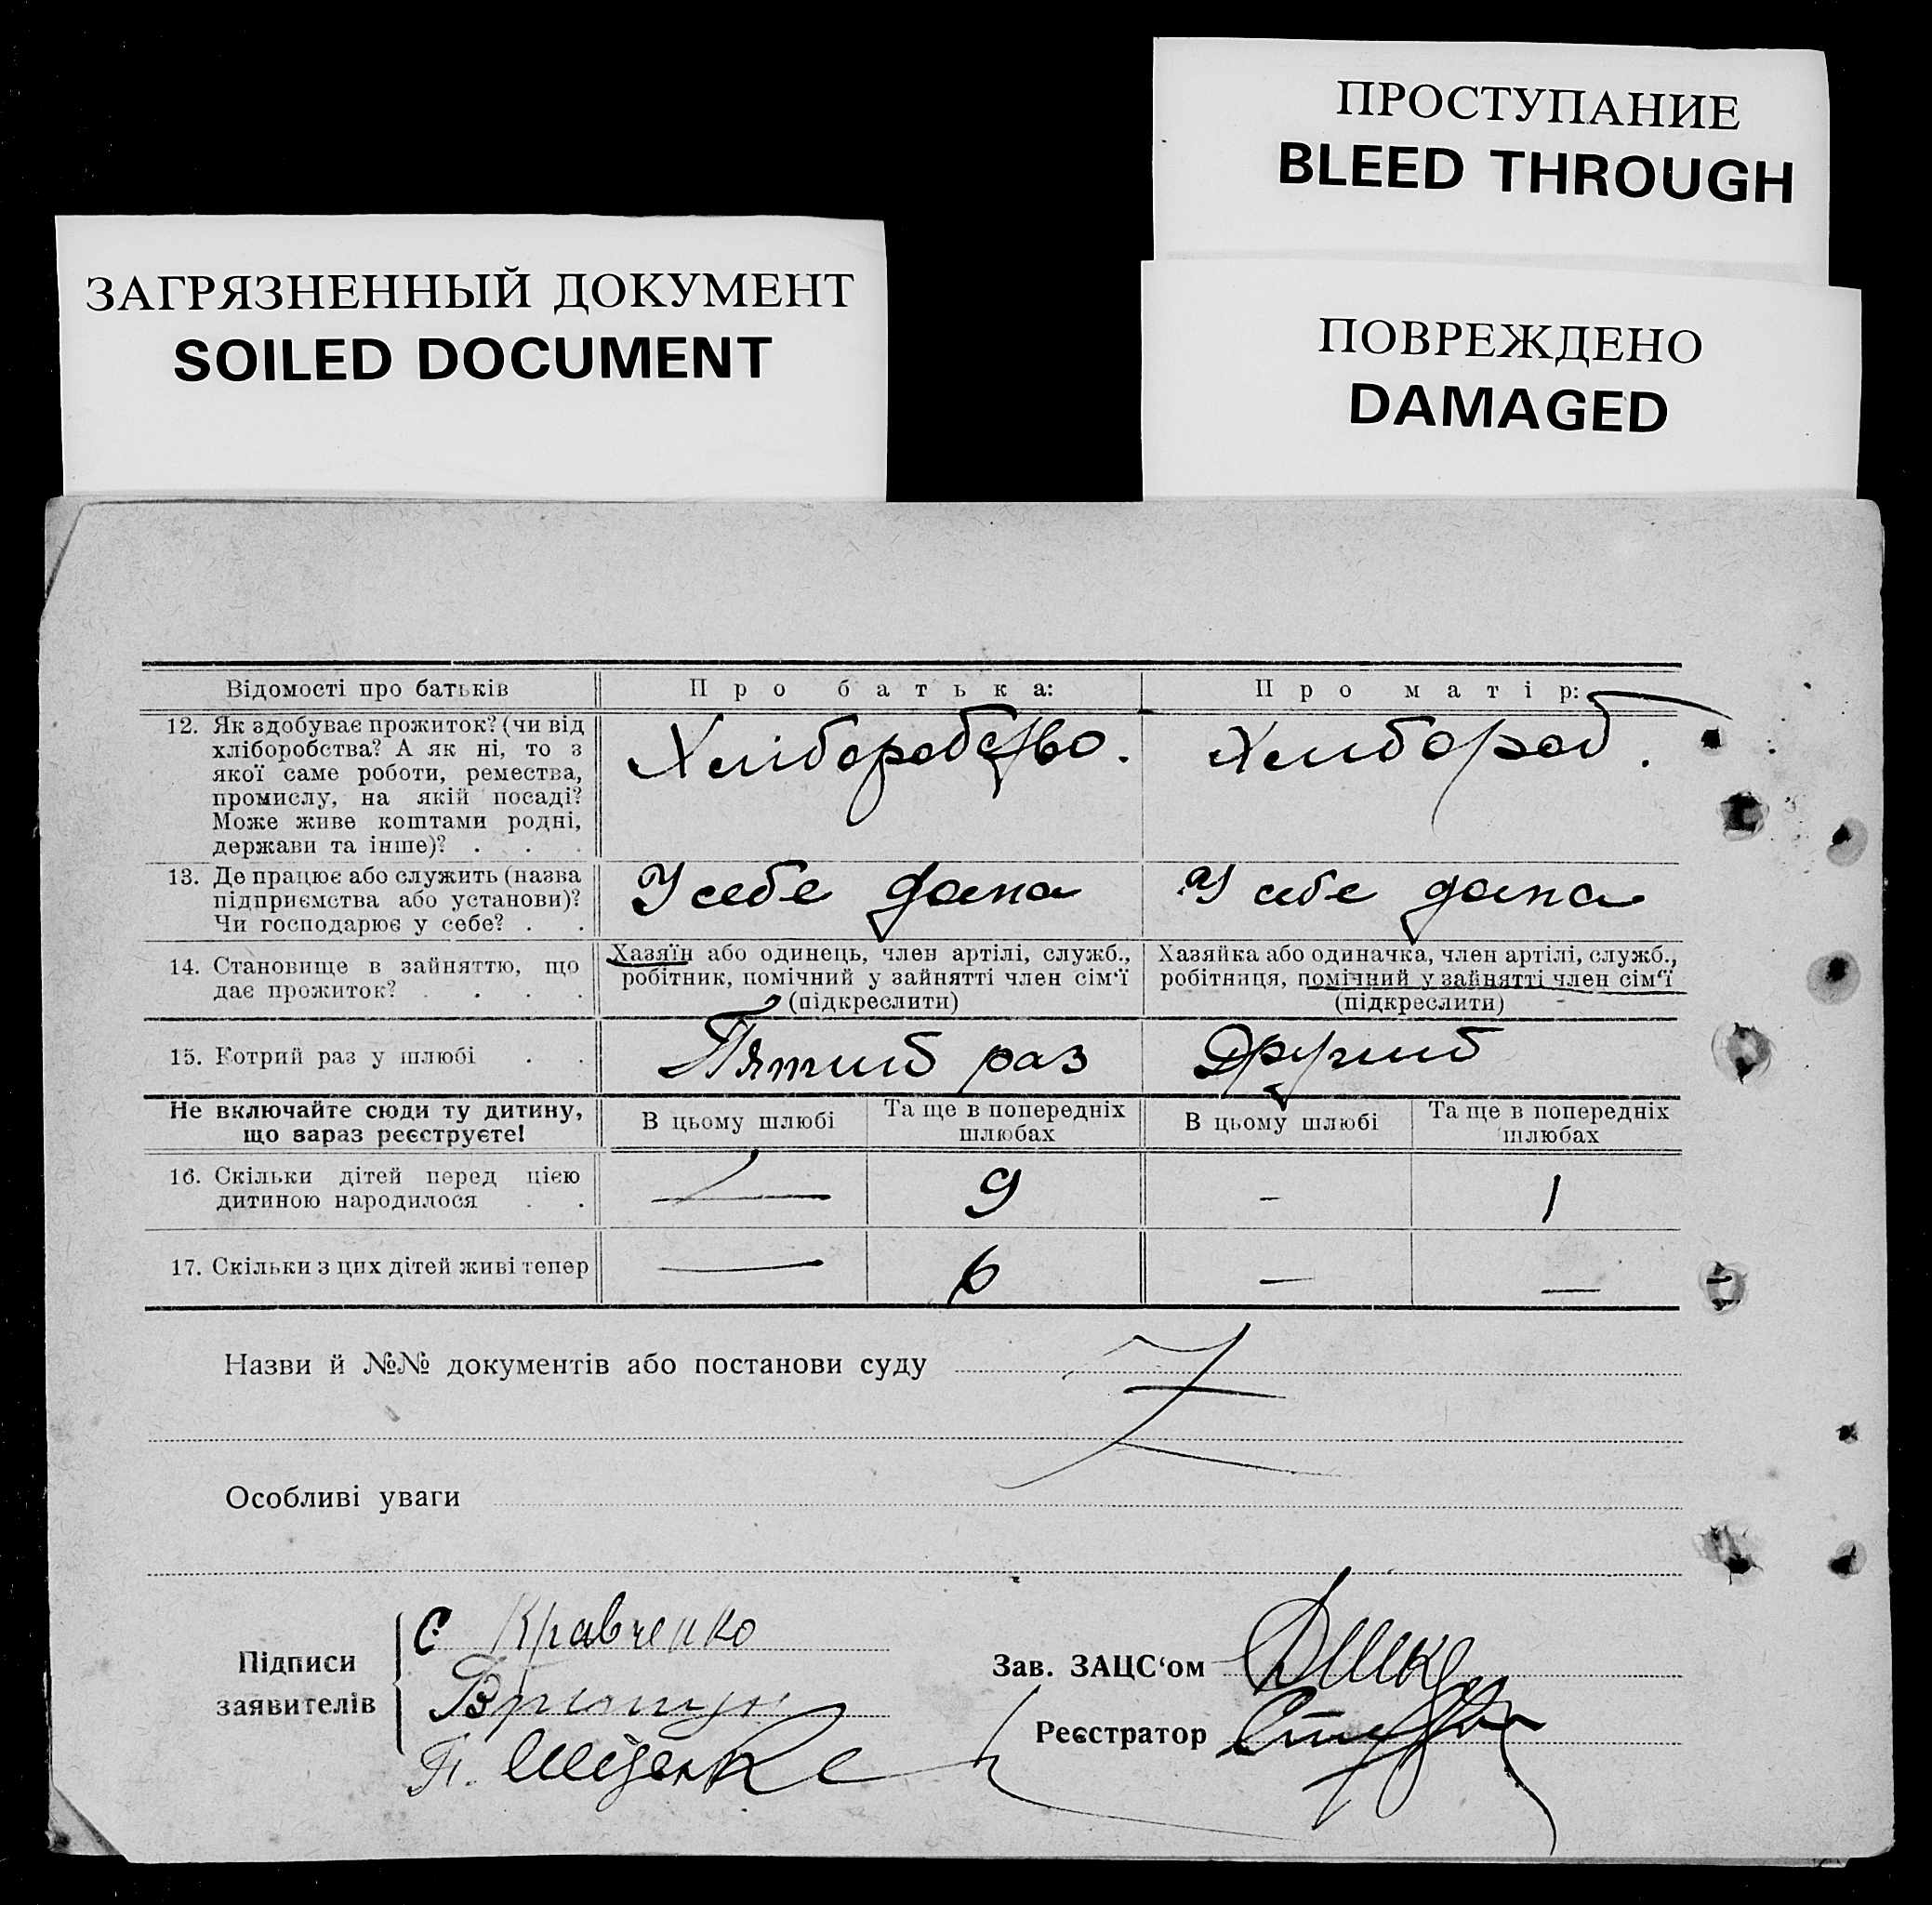 ПРОСТУПАНИЕ
BLEED THROUGH
ЗАГРЯЗНЕННЫЙ ДОКУМЕНТ
SOILED DOCUMENT
ПОВРЕЖДЕНО
DAMAGED
Відомості про батьків
Про батька:
Про матір:
12. Як здобуває прожиток? (чи від
хліборобства? А як ні, то з
якої саме роботи, ремества,
промислу, на якій посаді?
Може живе коштами родні,
держави та інше)? . . .
Хліборобство.
Хлибороб.
13. Де працює або служить (назва
підприємства або установи)?
Чи господарює у себе? . .
У себе дома
У себе дома
14. Становище в зайняттю, що
дає прожиток? . . . .
Хазяїн або одинець, член артілі, служб.,
робітник, помічний у зайнятті член сім'ї
(підкреслити)
Хазяйка або одиначка, член артілі, служб.,
робітниця, помічний у зайнятті член сім'ї
(підкреслити)
15. Котрий раз у шлюбі . .
Пятий раз
Другий
Не включайте сюди ту дитину,
що зараз реєструєте!
В цьому шлюбі
Та ще в попередніх
шлюбах
В цьому шлюбі
Та ще в попередніх
шлюбах
16. Скільки дітей перед цією
дитиною народилося . .
— 9 - 1
17. Скільки з цих дітей живі тепер
— 6 — —
Назви й №№ документів або постанови суду
Особливі уваги
Підписи
заявителів
С Кравченко
Зав. ЗАЦС'ом
Реєстратор